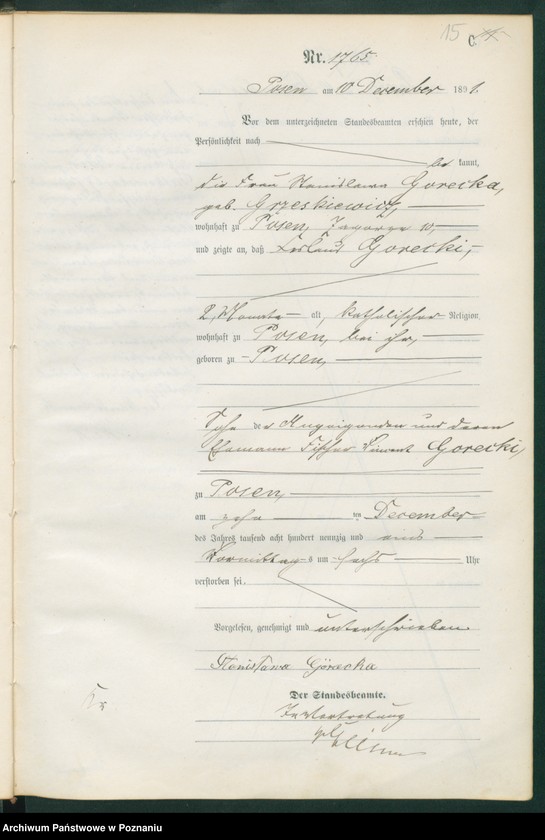 15
C.
Nr. 1765.
Posen am 10 December 1891.
Vor dem unterzeichneten Standesbeamten erschien heute, der
Persönlichkeit nach
be kannt,
die Frau Stanislawa Gorecka,
geb. Grzeskiewicz,
wohnhaft zu Posen, 10,
und zeigte an, daß Gorecki,
2 Monate alt, katholischer Religion,
wohnhaft zu Posen, bei ihr,
geboren zu Posen,
Sohn der Anzeigenden und deren
Ehemann Tischler Vincent Gorecki,
zu Posen,
am zehn ten December
des Jahres tausend acht hundert neunzig und eins
Vormittag s um sechs Uhr
verstorben sei.
Vorgelesen, genehmigt und unterschrieben
Stanisława Górecka
Der Standesbeamte.
In Vertretung
Archiwum Państwowe w Poznaniu